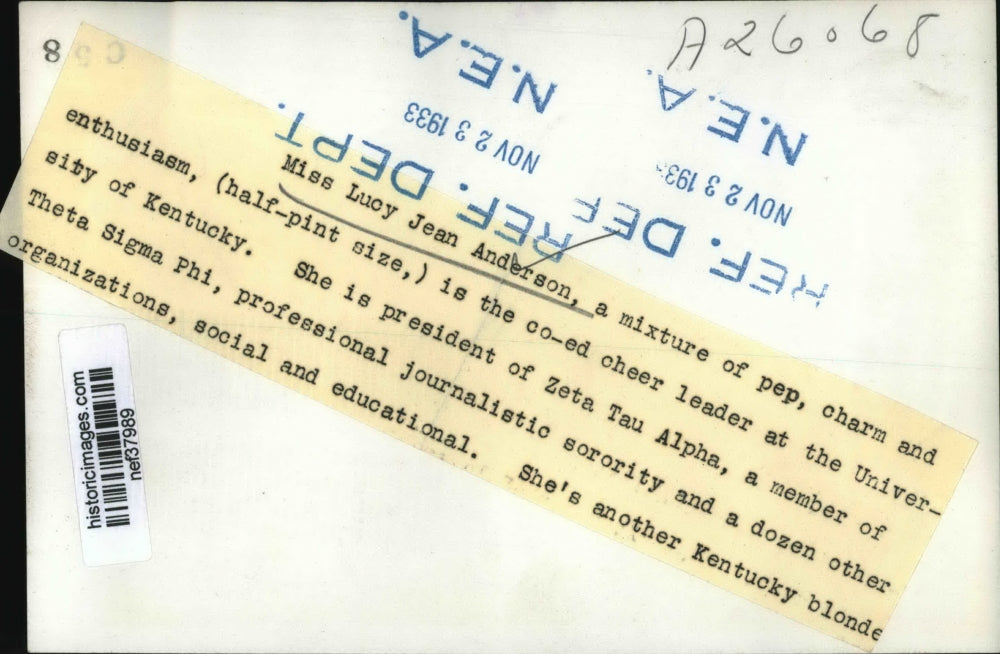 A26068
8
C58
N.E.A.
NOV 23 1933
REF. DEPT.
N.E.A.
NOV 23 193
REF. DE
Miss Lucy Jean Anderson, a mixture of pep, charm and
enthusiasm, (half-pint size,) is the co-ed cheer leader at the Univer-
sity of Kentucky. She is president of Zeta Tau Alpha, a member of
Theta Sigma Phi, professional journalistic sorority and a dozen other
organizations, social and educational. She's another Kentucky blonde
historicimages.com
nef37989